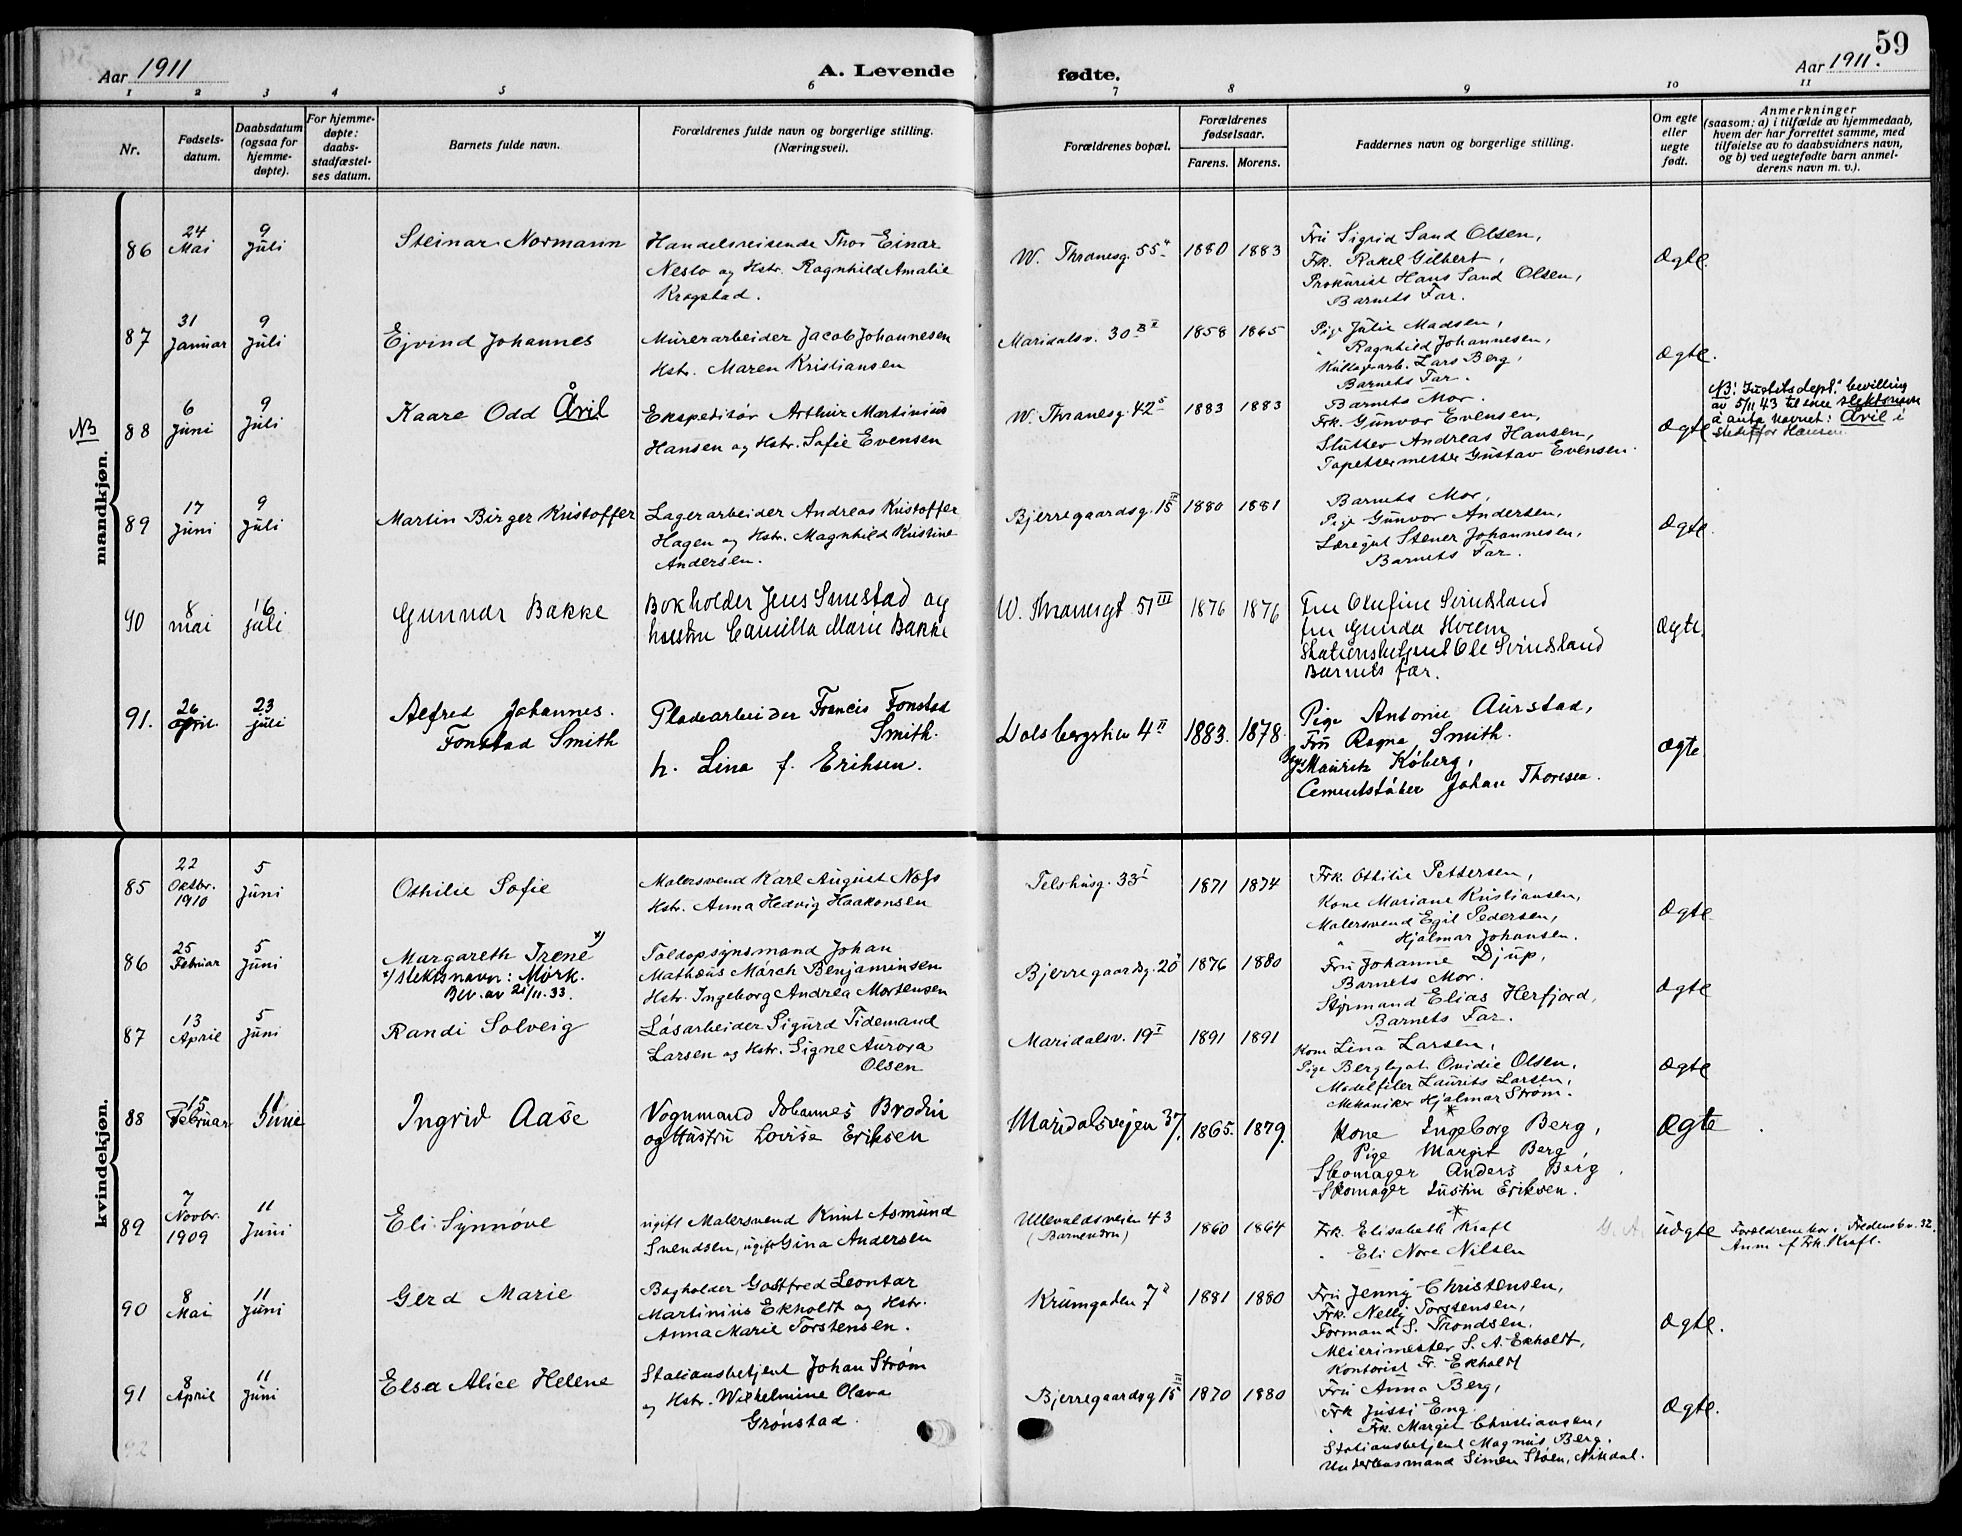 59
Aar 1911
A. Levende fødte.
Aar 1911.
1 2 3 4 5 6 7 8 9 10 11
Nr.
Fødsels-
datum.
Daabsdatum
(ogsaa for
hjemme-
døpte).
For hjemme-
døpte:
daabs-
stadfæstel-
ses datum.
Barnets fulde navn.
Forældrenes fulde navn og borgerlige stilling.
(Næringsvei).
Forældrenes bopæl.
Forældrenes
fødselsaar.
Farens. Morens.
Faddernes navn og borgerlige stilling.
Om egte
eller
uegte
født.
Anmerkninger
(saasom: a) i tilfælde av hjemmedaab,
hvem der har forrettet samme, med
tilføielse av to daabsvidners navn,
og b) ved uegtefødte barn anmel-
derens navn m. v.).
mandkjøn.
86
24
Mai
9
Juli
Steinar Normann
Handelsreisende Thor Einar
Neslo og Hstr. Ragnhild Amalie
Krogstad.
W. Thranesg. 55
1880 1883
Fru Sigrid Sand Olsen,
Frk. Rakel Gilbert,
Prokurist Hans Sand Olsen,
Barnets Far.
Ægte.
87
31
Januar
9
Juli
Ejvind Johannes
Murerarbeider Jacob Johannesen
Hstr. Maren Kristiansen
Maridalsv. 30 B II
1858 1865
Pige Julie Madsen,
" Ragnhild Johannesen,
Lars Berg,
Barnets Far.
Ægte.
NB
88
6
Juni
9
Juli
Kaare Odd Åril
Ekspeditør Arthur Martinius
Hansen og Hstr. Sofie Evensen
W. Thranesg. 42
1883 1883
Barnets Mor.
Frk. Gunvor Evensen,
Slutter Andreas Hansen,
Tapetsermester Gustav Evensen.
Ægte
NB! Justitsdept.s bevilling
av 5/11 43 til som slektsnavn
å anta navnet: Åril i
stedet for Hansen
89
17
Juni
9
Juli
Martin Birger Kristoffer
Lagerarbeider Andreas Kristoffer
Hagen og Hstr. Magnhild Kristine
Andersen.
Bjerregaardsg. 15 IV
1880 1881
Barnets Mor,
Pige Gunvor Andersen,
Læregut Stener Johannesen,
Barnets Far.
Ægte.
90
8
mai
16
juli
Gunnar Bakke
Bokholder Jens Smestad og
hustru Camilla Marie Bakke
W. Thranesgt 51 III
1876 1876
Fru Olufine Svindland
fru Gunda Hveem
Stationsbetjent Ole Svindsland
Barnets far.
Ægte.
91.
26
april.
23
juli
Alfred Johannes.
Fonstad Smith
Pladearbeider Francis Fonstad
Smith.
h. Lina f. Eriksen.
Dalsbergstien 4 II
1883. 1878.
Pige Antonie Aurstad,
Fru Ragna Smith.
Mauritz Köberg,
Cementstøber Johan Thoresen.
Ægte
kvindekjøn.
85
22
Oktbr.
1910
5
Juni
Othilie Sofie
Malersvend Karl August Næss
Hstr. Anna Hedvig Haakonsen
Telthusg. 33 I
1871 1874
Frk. Othilie Pettersen,
Kone Mariane Kristiansen,
Malersvend Egil Pedersen,
" Hjalmar Johansen.
Ægte
86
25
Februar
5
Juni
Margareth Irene x)
x) slektsnavn: Mørk.
Bev. av 21/11.33.
Toldopsynsmand Johan
Mathæus Mörch Benjaminsen
Hstr. Ingeborg Andrea Mortensen
Bjerregaardsg. 20
1876 1880
Fru Johanne Djup,
Barnets Mor.
Styrmand Elias Herfjord,
Barnets Far.
Ægte
87
13
April
5
Juni
Randi Solveig
Løsarbeider Sigurd Tidemand
Larsen og Hstr. Signe Aurora
Olsen
Maridalsv. 19 I
1891 1891
Kone Lina Larsen,
Pige Bergljot Ovidie Olsen,
Modelfiler Laurits Larsen,
Mekaniker Hjalmar Strøm.
Ægte
88
15
Februar
11
Juni
Ingrid Aase
Vognmand Johannes Brodin
og Hustru Lovise Eriksen
Maridalsvejen 37.
1865. 1879.
Kone Ingeborg Berg,
Pige Margit Berg,
Skomager Anders Berg,
Skomager Justin Eriksen.
Ægte
89
7
Novbr.
1909
11
Juni
Eli Synnøve
ugift Malersvend Knut Asmund
Svendsen, ugift Gina Andersen
Ullevaldsveien 43
1860 1864
Frk. Elisabeth Kraft
" Eli Nore Nilsen
G. A.
uægte
Forældrene bor i Fredensbv. 32.
Anm. af Frk. Kraft.
90
8
Mai
11
Juni
Gerd Marie
Bogholder Gottfred Leontar
Martinius Ekholdt og Hstr.
Anna Marie Torstensen.
Krumgaden 7
1881 1880
Fru Jenny Christensen,
Frk. Nelly Torstensen,
Formand S. Trondsen.
Meierimester S. A. Ekholdt,
Kontorist Fr. Ekholdt
Ægte.
91
8
April
11
Juni
Elsa Alice Helene
Stationsbetjent Johan Strøm
og Hstr. Wilhelmine Olava
Grønstad.
Bjerregaardsg 15
1870 1880
Fru Anna Berg,
Frk Jussi Eng.
" Frk. Margit Christiansen,
Stationsbetjent Magnus Berg.
Underlensmand Simen Støen, Nitedal.
Ægte.
92